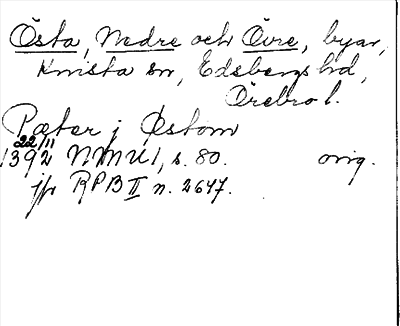 Östa, Nedre och Övre, byar,
Knista sn, Edsbergs hd,
Örebro l.
Pæter j Østom
22/11
1392 NMU 1, s. 80. orig.
jfr RPB II n. 2647.